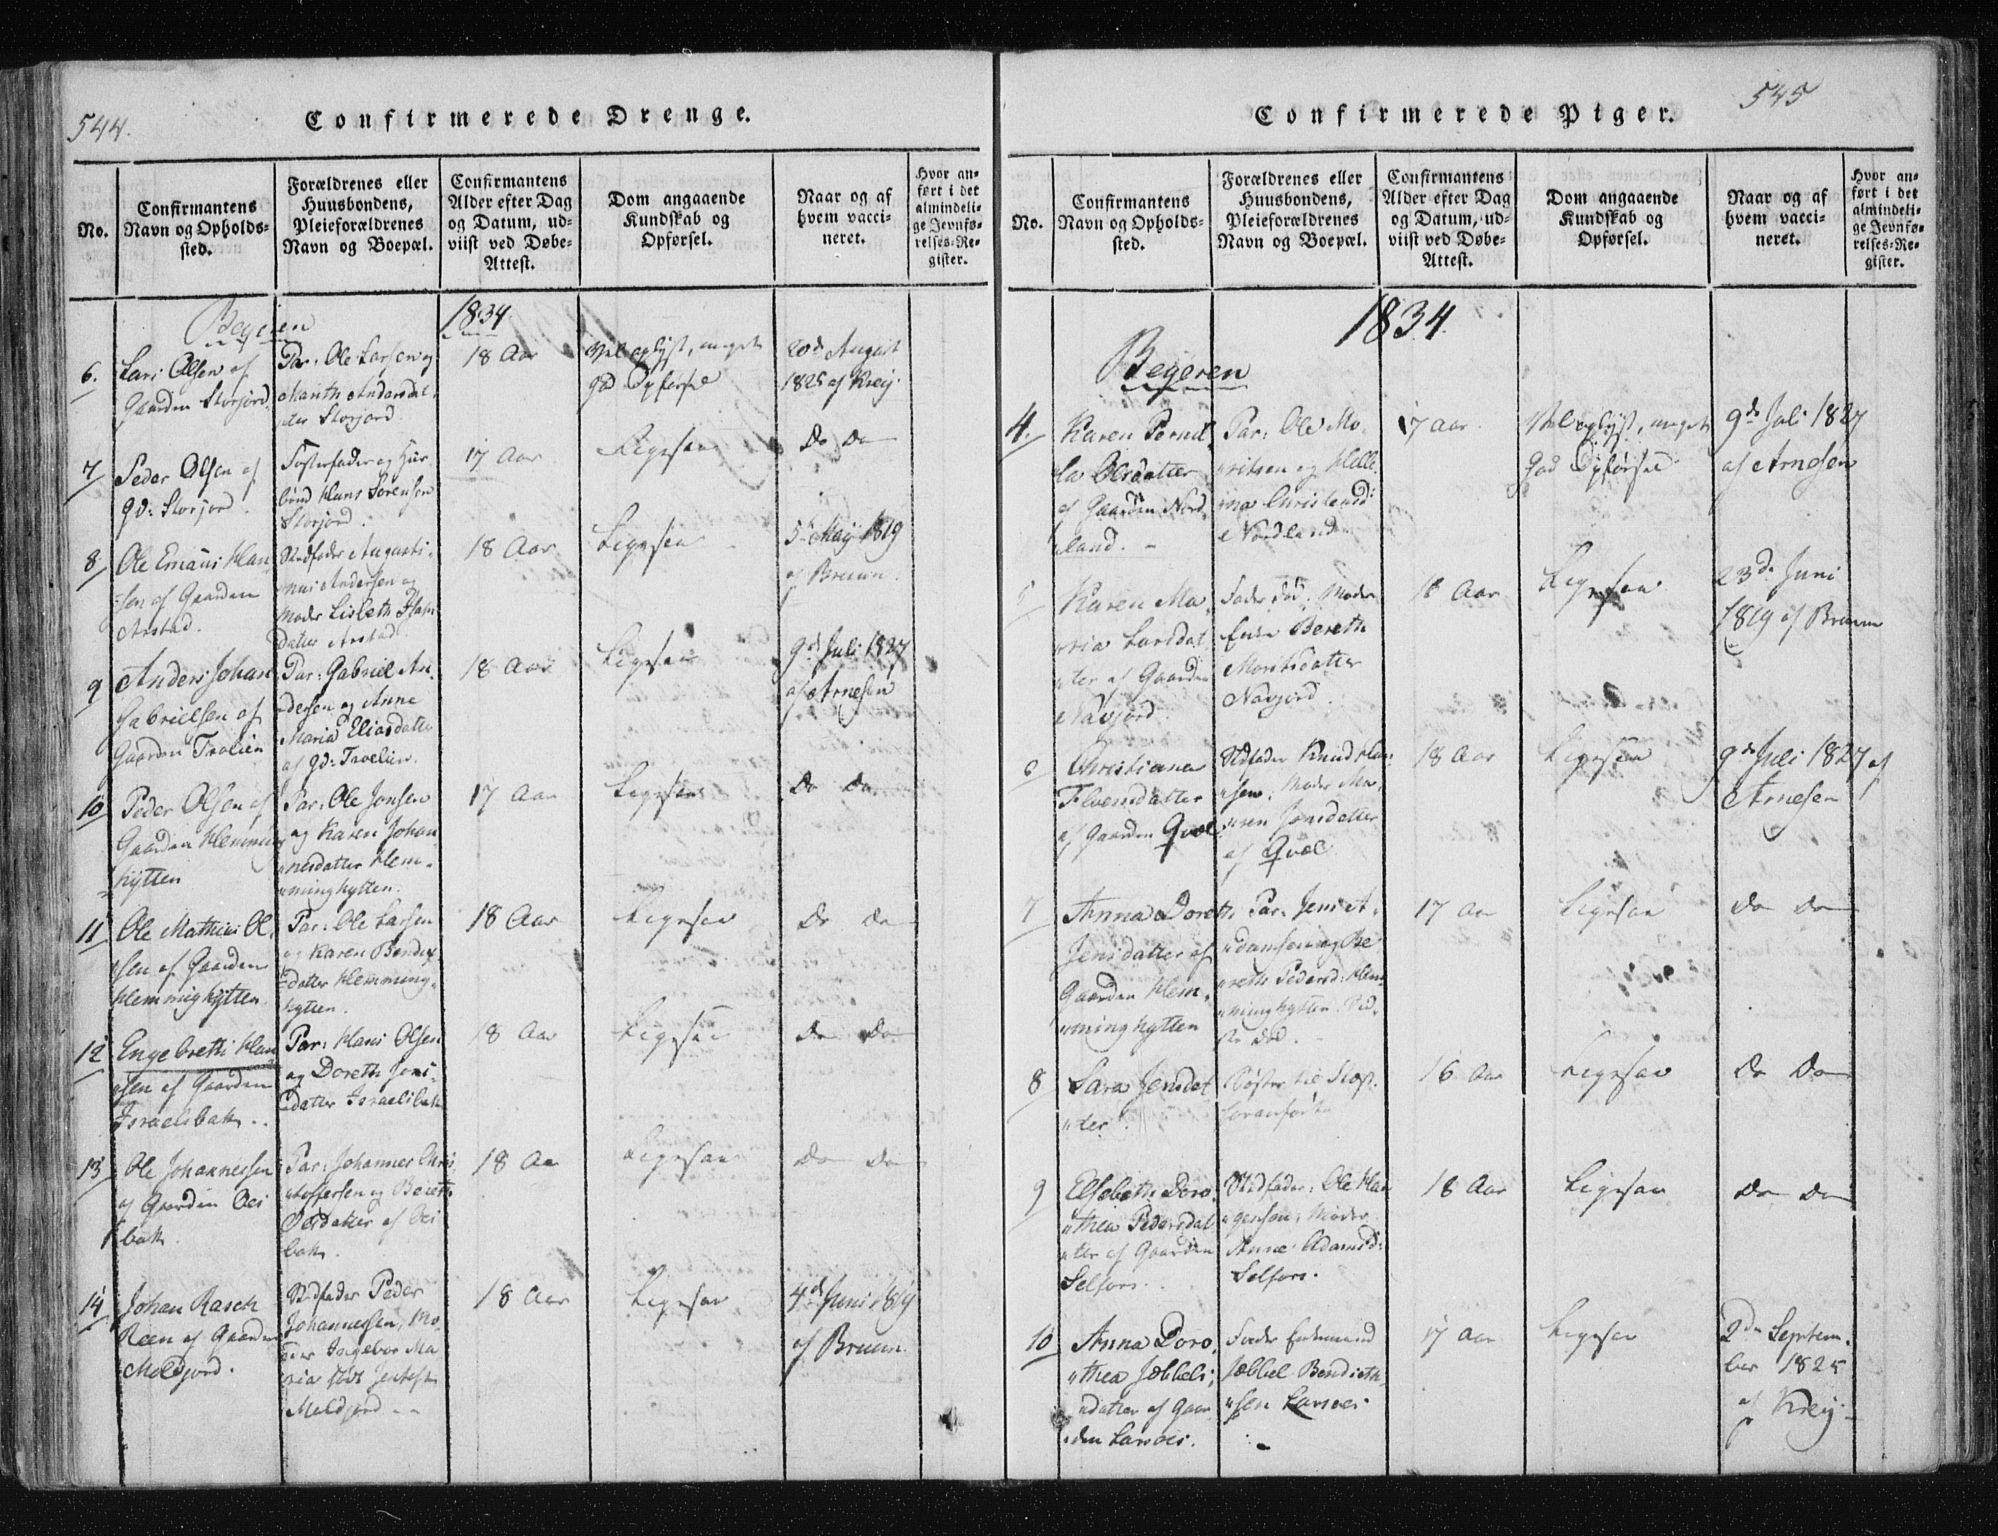 544.
Confirmerede Drenge.
No.
Confirmantens
Navn og Opholds-
sted.
Forældrenes eller
Huusbondens,
Pleieforældrenes
Navn og Boepæl.
Confirmantens
Alder efter Dag
og Datum, ud-
viist ved Døbe-
Attest.
Dom angaaende
Kundskab og
Opførsel.
Naar og af
hvem vacci-
neret.
Hvor an-
ført i det
almindeli-
ge Jevnfø-
relses-Re-
gister.
Bejeren
1834
6.
Lars Olsen af
Gaarden Storjord
Par: Ole Larsen og
Marith Andersdat-
ter Storjord.
18 Aar
Vel oplyst, meget
god Opførsel
20de August
1825 af Krey.
7
Peder Olsen af
Gd: Storjord.
Fosterfader og Hus-
bond Hans Sørensen
Storjord.
17 Aar
Ligesaa
Do Do
8
Ole Emaus Han-
sen af Gaarden
Arstad.
Stedfader Augusti-
nus Andersen og
Moder Lisbeth
datter Arstad.
18 Aar
Ligesaa
5te May 1819
af Bruun.
9
Anders Johan
Gabrielsen af
Gaarden Trolien
Par: Gabriel An-
dersen og Anne
Maria Eliasdatter
af Gd: Troelien.
18 Aar
Ligesaa
9de Juli 1827
af Arnesen
10
Peder Olsen af
Gaarden Hemming-
hytten
Par: Ole Jonsen
og Karen Johan-
nesdatter Hem-
minghytten.
17 Aar
Ligesaa
Do Do
11
Ole Mathias Ol-
sen af Gaarden
Hemmighytten.
Par: Ole Larsen
og Karen Bendix-
datter Hemming-
hytten.
18 Aar
Ligesaa
Do Do
12
Engebreth Han-
sen af Gaarden
Israelsbak..
Par: Hans Olsen
og Doreth Jons-
datter Israelsbak
18 Aar
Ligesaa
Do Do
13
Ole Johannesen
af Gaarden Oes
bak.
Par: Johannes Chris
toffersen og Bereth
datter af Oes
bak.
18 Aa
Ligesaa
Do Do
14
Johan Rasch
Reen af Gaarden
Meldjord.
Stedfader Peder
Johannesen, Mo-
der Ingebor Ma
ria
Meldjord --
18 Aar
Ligesaa
4de Juni 1819
af Bruun.
545
Confirmerede Piger.
No.
Confirmantens
Navn og Opholds-
sted.
Forældrenes eller
Huusbondens,
Pleieforældrenes
Navn og Boepæl.
Confirmantens
Alder efter Dag
og Datum, ud-
viist ved Døbe-
Attest.
Dom angaaende
Kundskab og
Opførsel.
Naar og af
hvem vacci-
neret.
Hvor an-
ført i det
almindeli-
ge Jevnfø-
relses-Re-
gister.
1834.
Bejeren
4.
Karen Pernil-
la Olsdatter
af Gaarden Nord-
land. -
Par: Ole Mo-
ritsen og Helle-
ina Christensd:
Nordland
17 Aar
Vel oplyst, meget
God Opførsel
9de Juli 1827
af Arnesen
5
Karen Ma-
ria Larsdat-
ter af Gaarden
Navjord.
Fader død. Moder
Enke Bereth
Moritsdatter
Navjord.
18 Aar
Ligesaa
23de Juni
1819 af Bruun
6
Christiana
datter
af Gaarden Qval
Stedfader Knud Han-
sen, Moder Ma-
ren Jonsdatter
af Qval.
18 Aar
Ligesaa
9de Juli 1827 af
Arnesen
7
Anna Doreth
Jensdatter af
Gaarden Hem-
minghytten
Par: Jens A-
damsen og Be
reth Pedersd: Hem-
minghytten.
død.
17 Aa
Ligesaa
Do Do
8
Sara Jensdat
ter.
Søster til No 7
foranførte
16 Aar
Ligesaa
Do Do
9
Elsebeth Doro-
thea Pedersdat-
ter af Gaarden
Selfors.
Stedfader: Ole Haa-
gensen, Moder
Anne Adamsd:
Selfors.
18 Aar
Ligesaa
Do Do
10
Anna Doro-
thea Jækkels-
datter af Gaar-
den Larsoes.
Fader
Jækkel Bendicth-
sen Larsoes
17 Aar
Ligesaa
2den Septem-
ber 1825
af Krey-